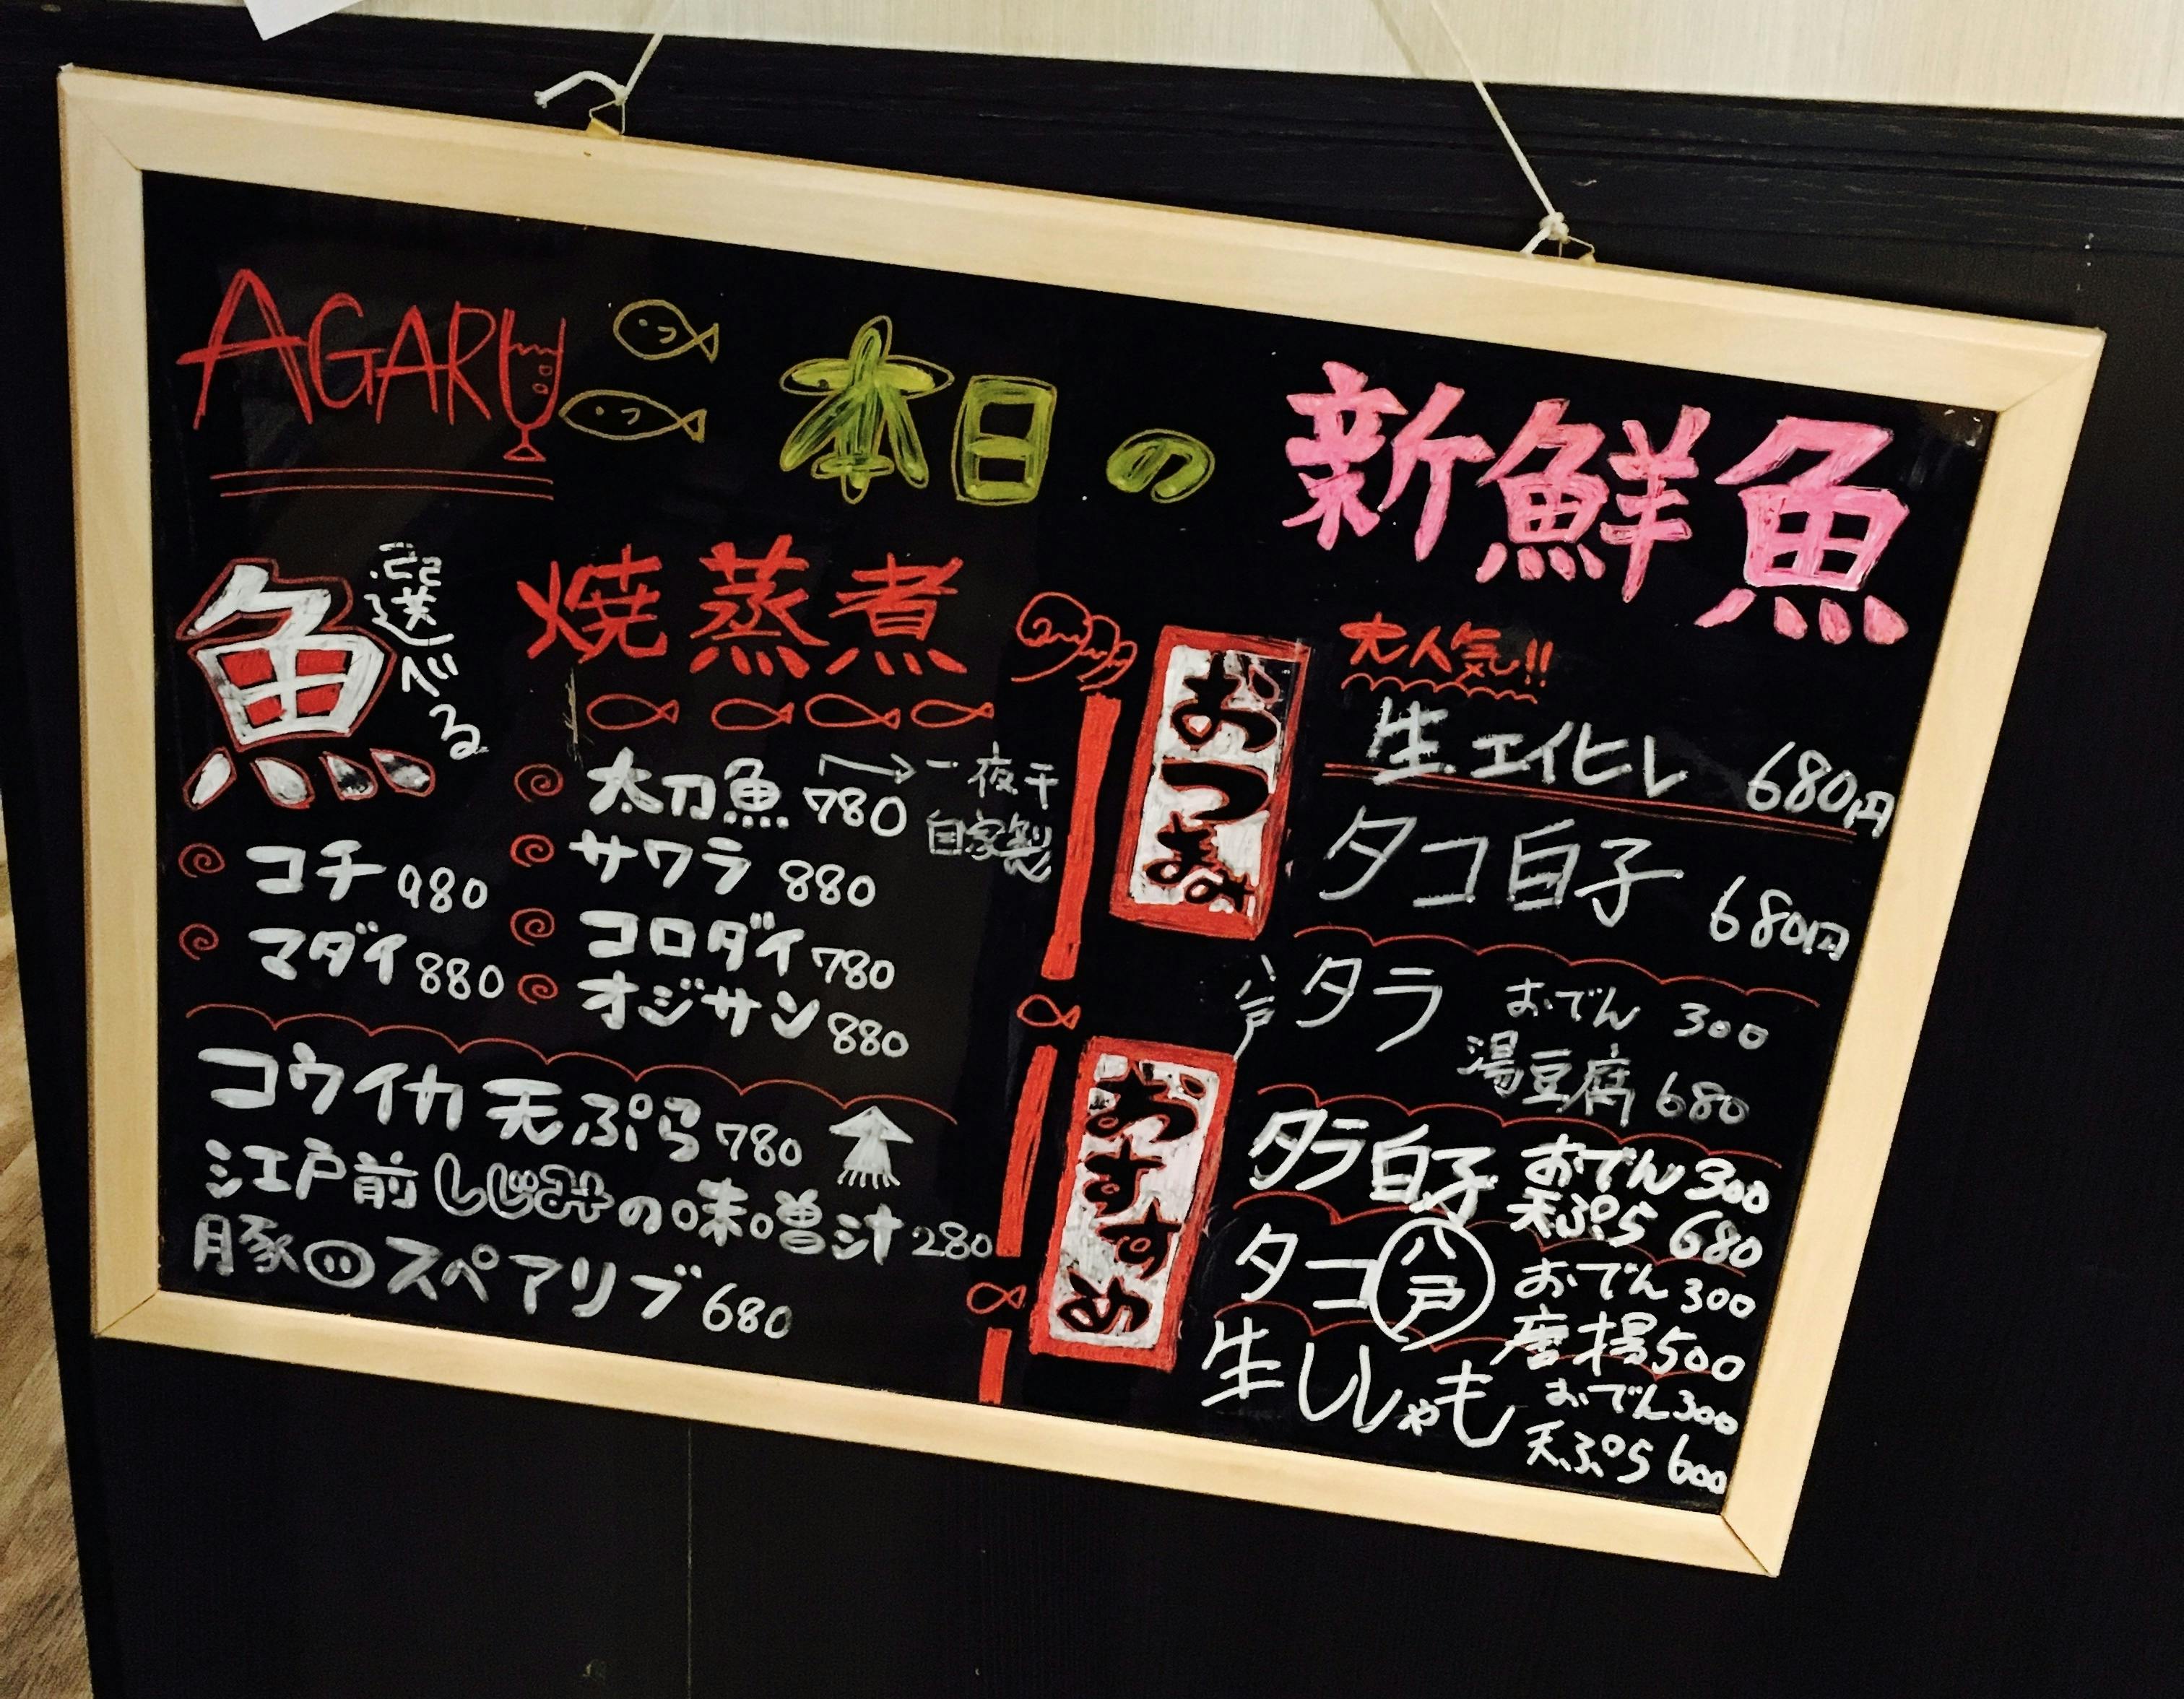 AGARU 本日の新鮮魚
選べる
魚
焼 蒸 煮
太刀魚 780 → 一夜干
自家製
サワラ 880
コロダイ 780
オジサン 880
コチ 980
マダイ 880
コウイカ 天ぷら 780
江戸前しじみの味噌汁 280
豚スペアリブ 680
おつまみ
大人気!!
生エイヒレ 680円
タコ白子 680円
おすすめ
八戸
タラ おでん 300
湯豆腐 680
タラ白子 おでん 300
天ぷら 680
タコ 八戸 おでん 300
唐揚 500
生ししゃも おでん 300
天ぷら 600